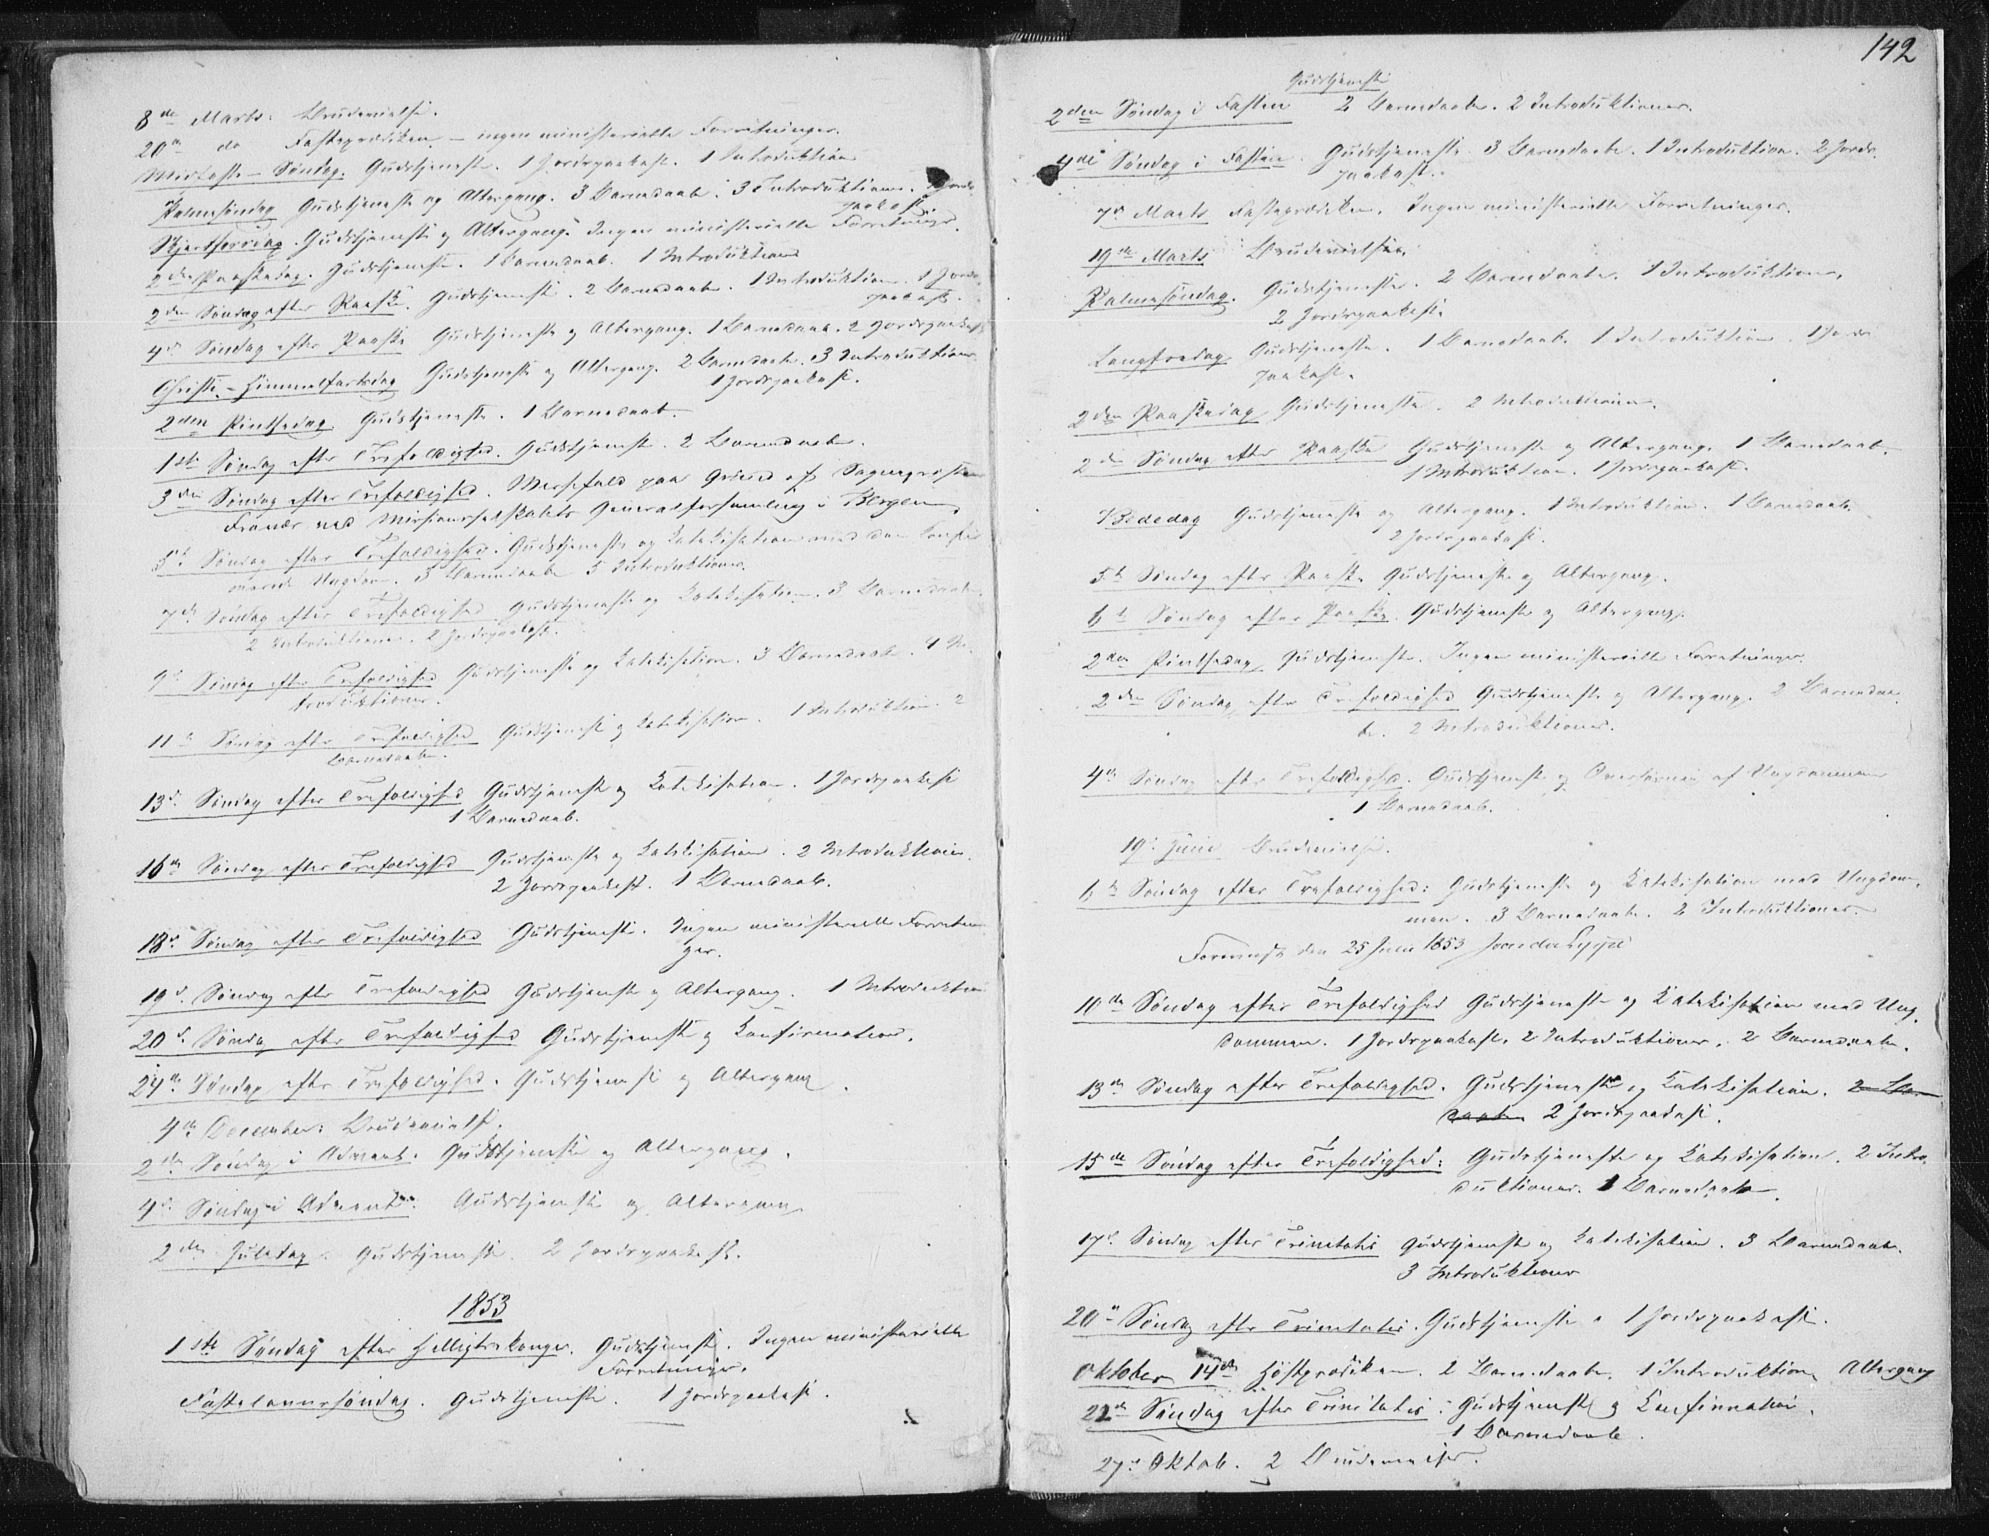 8de Marts. Brudevielse.
20de do Fasteprædiken – ingen ministerielle Forretninger.
Midfaste-Søndag. Gudstjeneste. 1 Jordspaakast. 1 Introduktion
Palmesøndag Gudstjeneste og Altergang. 3 Barnedaab. 3 Introduktioner. Jords
paakast.
Skjertorsdag. Gudstjeneste og Altergang. Ingen ministerielle Forretninger.
2den Paaskedag. Gudstjeneste. 1 Barnedaab. 1 Introduktion
2den Søndag efter Paaske. Gudstjeneste. 2 Barnedaab. 1 Introduktion. 1 Jords
paakast.
4de Søndag efter Paaske Gudstjeneste og Altergang. 1 Barnedaab. 2 Jordspaakast
Christi-Himmelfartsdag Gudstjeneste og Altergang. 2 Barnedaab. 3 Introduktioner
1 Jordspaakast.
2den Pintsedag Gudstjeneste. 1 Barnedaab.
1ste Søndag efter Trefoldighed. Gudstjeneste. 2 Barnedaab.
3die Søndag efter Trefoldighed. Messefald paa Grund af Sognepræstens
Fravær ved Missionsselskabets Generalforsamling i Bergen.
5te Søndag efter Trefoldighed. Gudstjeneste og Katekisation med den konfir
merede Ungdom. 3 Barnedaab 5 Introduktioner.
7de Søndag efter Trefoldighed Gudstjeneste og Katekisation. 3 Barnedaab.
2 Introduktioner. 2 Jordspaakast.
9de Søndag efter Trefoldighed Gudstjeneste og Katekisation. 3 Barnedaab. 4 In
troduktioner.
11te Søndag efter Trefoldighed Gudstjeneste og Katekisation. 1 Introduktion. 2
Barnedaab.
13de Søndag efter Trefoldighed Gudstjeneste og Katekisation. 1 Jordspaakast
1 Barnedaab.
16de Søndag efter Trefoldighed Gudstjeneste og Katekisation. 2 Introduktioner.
2 Jordspaakast. 1 Barnedaab.
18de Søndag efter Trefoldighed Gudstjeneste. Ingen ministerielle Forretnin
ger.
19de Søndag efter Trefoldighed Gudstjeneste og Altergang. 1 Introduktion
20de Søndag efter Trefoldighed Gudstjeneste og Konfirmation.
24de Søndag efter Trefoldighed. Gudstjeneste og Altergang.
4de December: Brudevielse.
2den Søndag i Advent. Gudstjeneste og Altergang.
4de Søndag i Advent. Gudstjeneste og Altergang
2den Juledag. Gudstjeneste. 2 Jordspaakast.
1853
1ste Søndag efter Helligtrekonger. Gudstjeneste. Ingen ministerielle
Forretninger.
Fastelavnssøndag. Gudstjeneste. 1 Jordspaakast.
142
Gudstjeneste
2den Søndag i Fasten 2 Barnedaab. 2 Introduktioner.
4de Søndag i Fasten. Gudstjeneste 3 Barnedaab. 1 Introduktion. 2 Jords
paakast.
7de Marts Fasteprædiken. Ingen ministerielle Forretninger.
19de Marts Brudevielse.
Palmesøndag. Gudstjeneste. 2 Barnedaab. 1 Introduktion.
2 Jordspaakast.
Langfredag Gudstjeneste. 1 Barnedaab. 1 Introduktion. 1 Jords
paakast.
2den Paaskedag Gudstjeneste. 2 Introduktioner.
2den Søndag efter Paaske Gudstjeneste og Altergang. 1 Barnedaab.
1 Introduktion. 1 Jordspaakast.
Bededag Gudstjeneste og Altergang. 1 Introduktion. 1 Barnedaab.
2 Jordspaakast.
5te Søndag efter Paaske Gudstjeneste og Altergang.
6te Søndag efter Paaske. Gudstjeneste og Altergang.
2den Pintsedag Gudstjeneste. Ingen ministerielle Forretninger.
2den Søndag efter Trefoldighed Gudstjeneste og Altergang. 2 Barnedaa
b. 2 Introduktioner.
4de Søndag efter Trefoldighed. Gudstjeneste og Overhøring af Ungdommen
1 Barnedaab.
19de Juni Brudevielse.
6te Søndag efter Trefoldighed: Gudstjeneste og Katekisation med Ungdom
men. 3 Barnedaab. 2 Introduktioner.
den 25 1853
10de Søndag efter Trefoldighed Gudstjeneste og Katekisation med Ung
dommen. 1 Jordspaakast. 2 Introduktioner. 2 Barnedaab.
13de Søndag efter Trefoldighed. Gudstjeneste og Katekisation. 2 Bar
daab 2 Jordspaakast.
15de Søndag efter Trefoldighed: Gudstjeneste og Katekisation. 2 Intro
duktioner. 1 Barnedaab.
17de Søndag efter Trinitatis Gudstjeneste og Katekisation. 3 Barnedaab.
3 Introduktioner
20de Søndag efter Trinitatis. Gudstjeneste. 1 Jordspaakast.
Oktober 14de Høstprædiken. 2 Barnedaab. 1 Introduktion Altergang
22de Søndag efter Trinitatis. Gudstjeneste og Konfirmation.
1 Barnedaab.
27de Oktob. 2 Brudevielser.